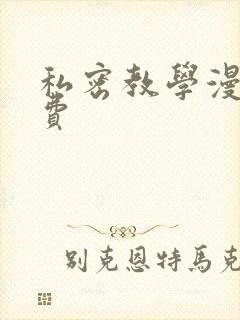 私密教學漫
費
别克恩特馬克